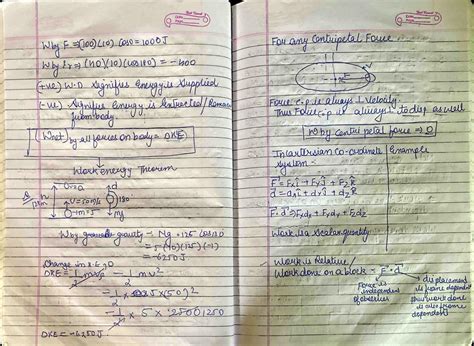 W by F = (100)(10) cos0 = 1000J
W by = (40)(10)(cos180) = -400
(+ve) W.D Signifies Energy is Supplied
(-ve) Signifies Energy is Extracted /
from body.
(Wnet) by all forces on body = ΔKE)
Work energy Theorem
V=0
u=50m/s
180
m=5
mg
W by gravity -
= 5(10)(125)(-1)
= -6250J
Change in K.E
ΔKE = - 1/2 mu²
- 1/2 × (50)²
- 1/2 × 5 ×
ΔKE = -6250J
For any Centripetal Force
Force c.p is always ⊥ velocity.
Thus Force c.p is always ⊥ to dis as well
W by Centripetal force => 0
In Cartersian Co-ordinate
System
Example
F = Fxî + Fyĵ + Fz
d = dxî + dyĵ + dz
F.d => Fxdx + Fydy + Fzdz
Work is a Scalar quantity
Work is Relative/
Work done on a block = F.d
Force is
independent
of observer
displacement
is frame dependent
thus work done
is also frame
dependent